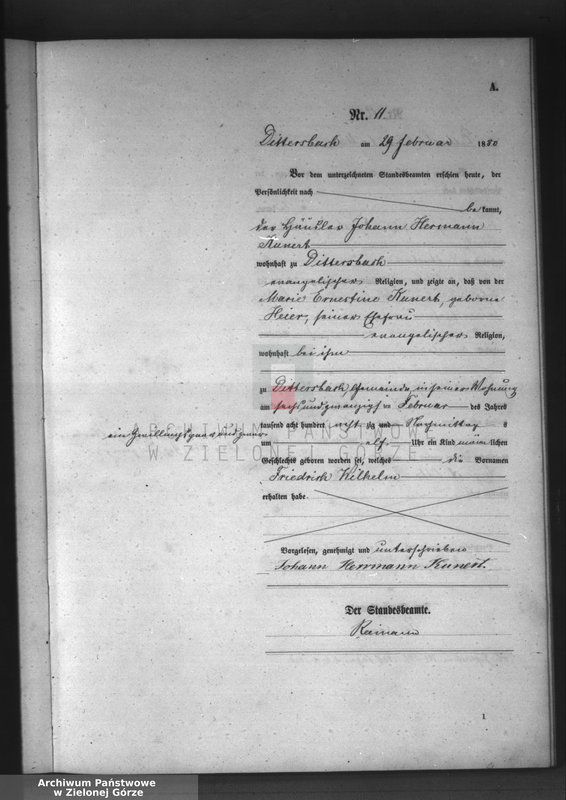 A.
Nr. 11
Dittersbach am 29 Februar 1880
Vor dem unterzeichneten Standesbeamten erschien heute, der
Persönlichkeit nach
be kannt,
der Häusler Johann Hermann
Kunert
wohnhaft zu Dittersbach
evangelischer Religion, und zeigte an, daß von der
Marie Ernestine Kunert, geborne
Heier, seiner Ehefrau
evangelischer Religion,
wohnhaft bei ihm
zu Dittersbach, Gemeinde, in seiner Wohnung
am sechsundzwanzigsten Februar des Jahres
tausend acht hundert acht zig und Nachmittag s
ein Zwillingspaar und zwar
um elf Uhr ein Kind männ lichen
Geschlechts geboren worden sei, welches die Vornamen
Friedrich Wilhelm
erhalten habe
Vorgelesen, genehmigt und unterschrieben
Johann Herrmann Kunert.
Der Standesbeamte.
1
ARCHIWUM PAŃSTWOWE
W ZIELONEJ GÓRZE
Archiwum Państwowe
w Zielonej Górze